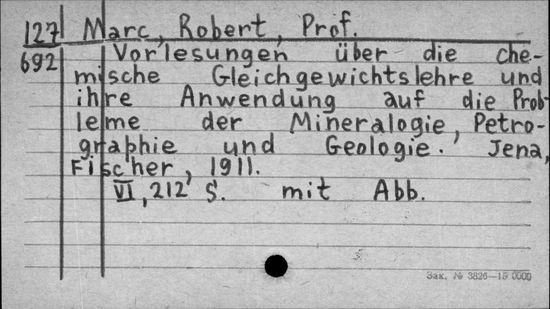 127 Marc, Robert, Prof.
692 Vorlesungen über die che-
mische Gleichgewichtslehre und
ihre Anwendung auf die Prob-
leme der Mineralogie, Petro-
graphie und Geologie. Jena,
Fischer, 1911.
VI, 212 S. mit Abb.
Зак. № 3826—15 0000